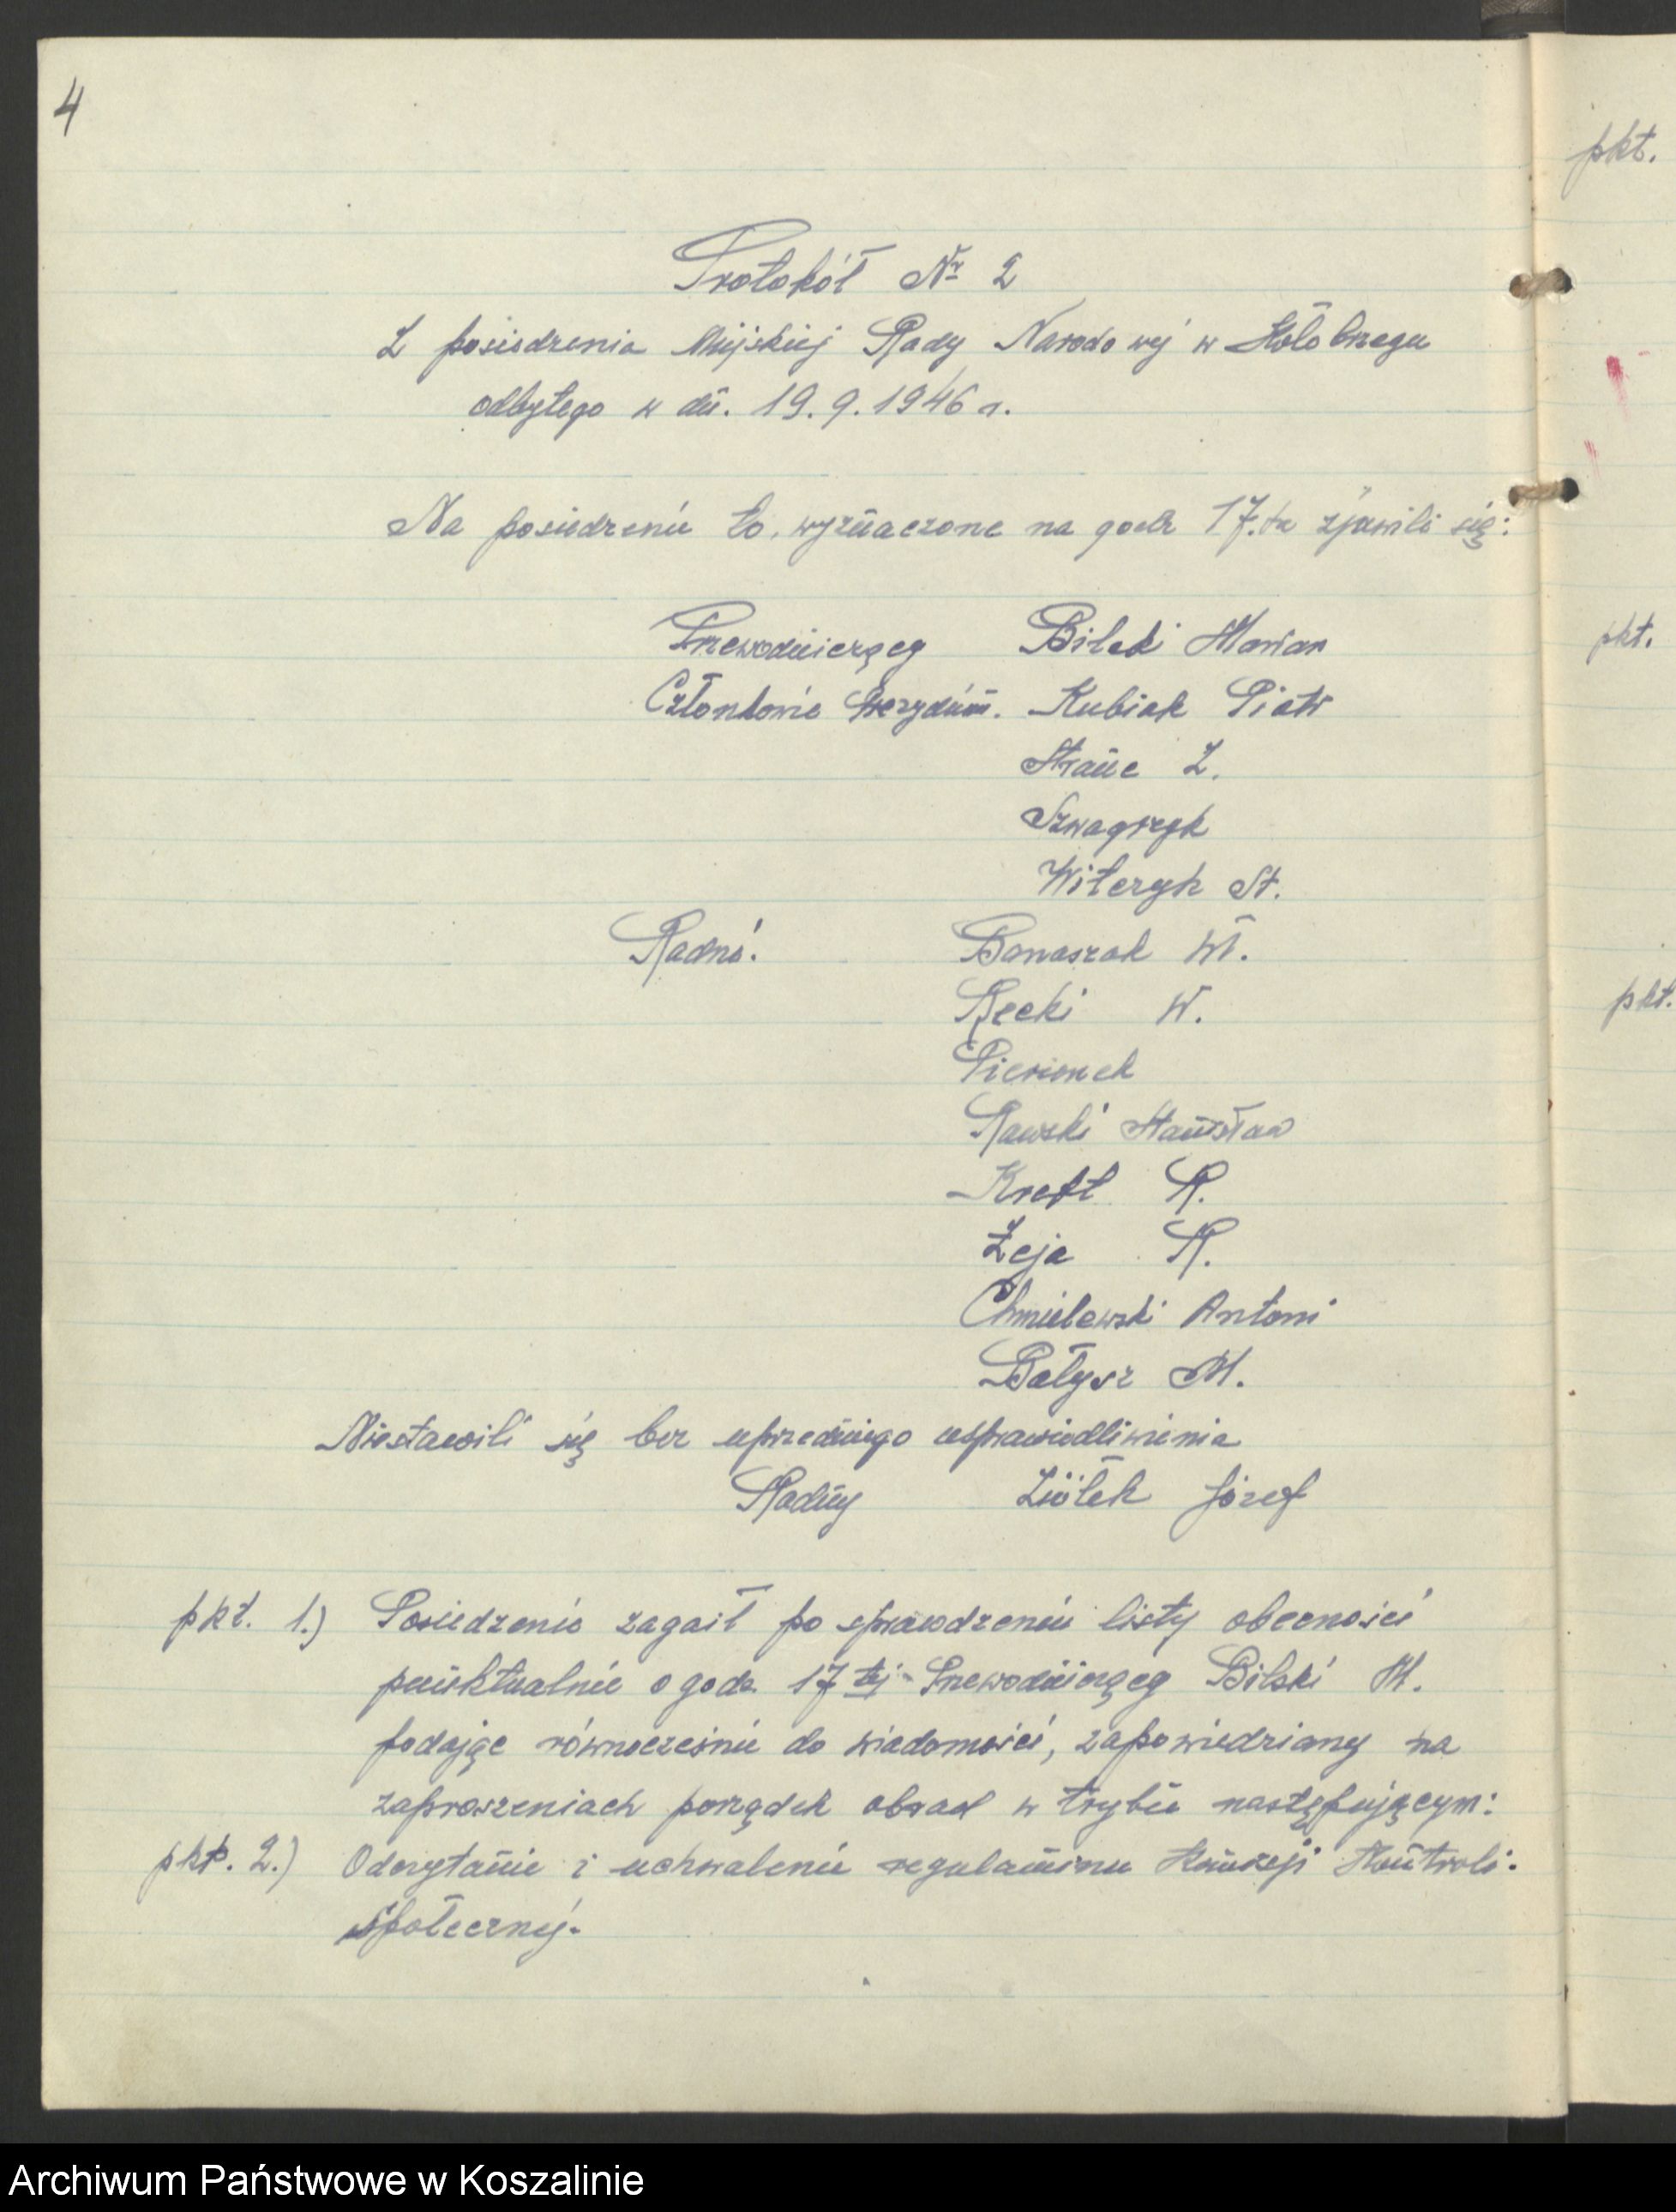 4
Protokół Nr 2
Z posiedzenia Miejskiej Rady Narodowej w Kołobrzegu
odbytego w dn. 19.9.1946 r.
Na posiedzenie to, wyznaczone na godz 17.ta zjawili się:
Przewodniczący Bilski Marian
Członkowie Prezydium. Kubiak Piotr
Z.
Szwagrzyk
Witczyk St.
Radni. Banaszak Wł.
Recki W.
Pierionek
Rawski Stanisław
Kreft R.
Zeja R.
Chmielewski Antoni
Bałysz M.
Niestawili się bez uprzedniego usprawiedliwienia
Radny Ziółek Józef
pkt. 1.) Posiedzenie zagaił po sprawdzeniu listy obecności
punktualnie o godz. 17tej Przewodniczący Bilski M.
podając równocześnie do wiadomości, zapowiedziany na
zaproszeniach porządek obrad w trybie następującym:
pkt. 2.) Odczytanie i uchwalenie regulaminu Komisji Kontroli
społecznej.
pkt.
pkt.
pkt.
Archiwum Państwowe w Koszalinie